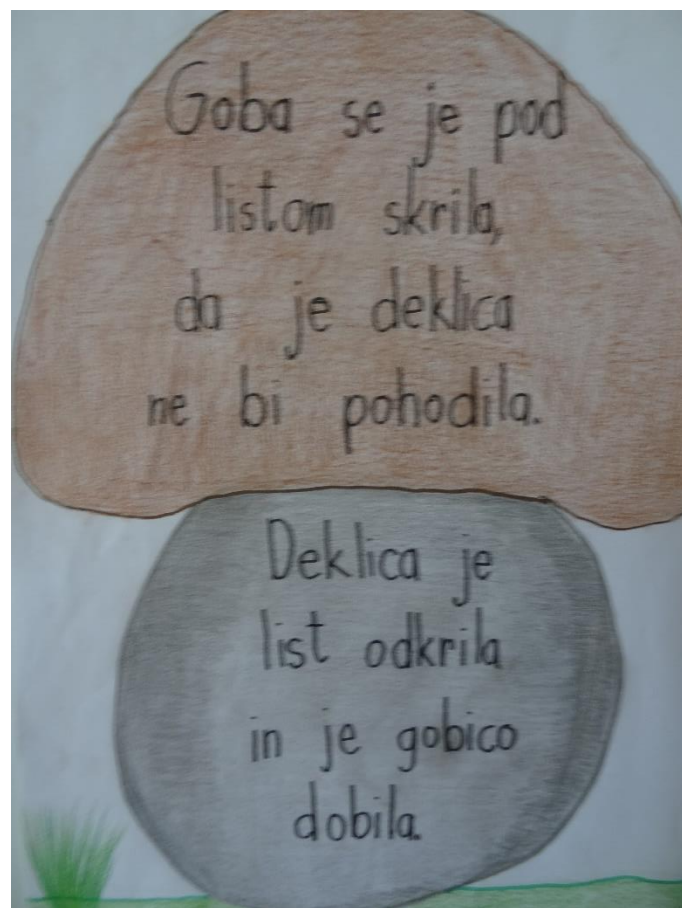 Goba se je pod
listom skrila,
da je deklica
ne bi pohodila.
Deklica je
list odkrila
in je gobico
dobila.